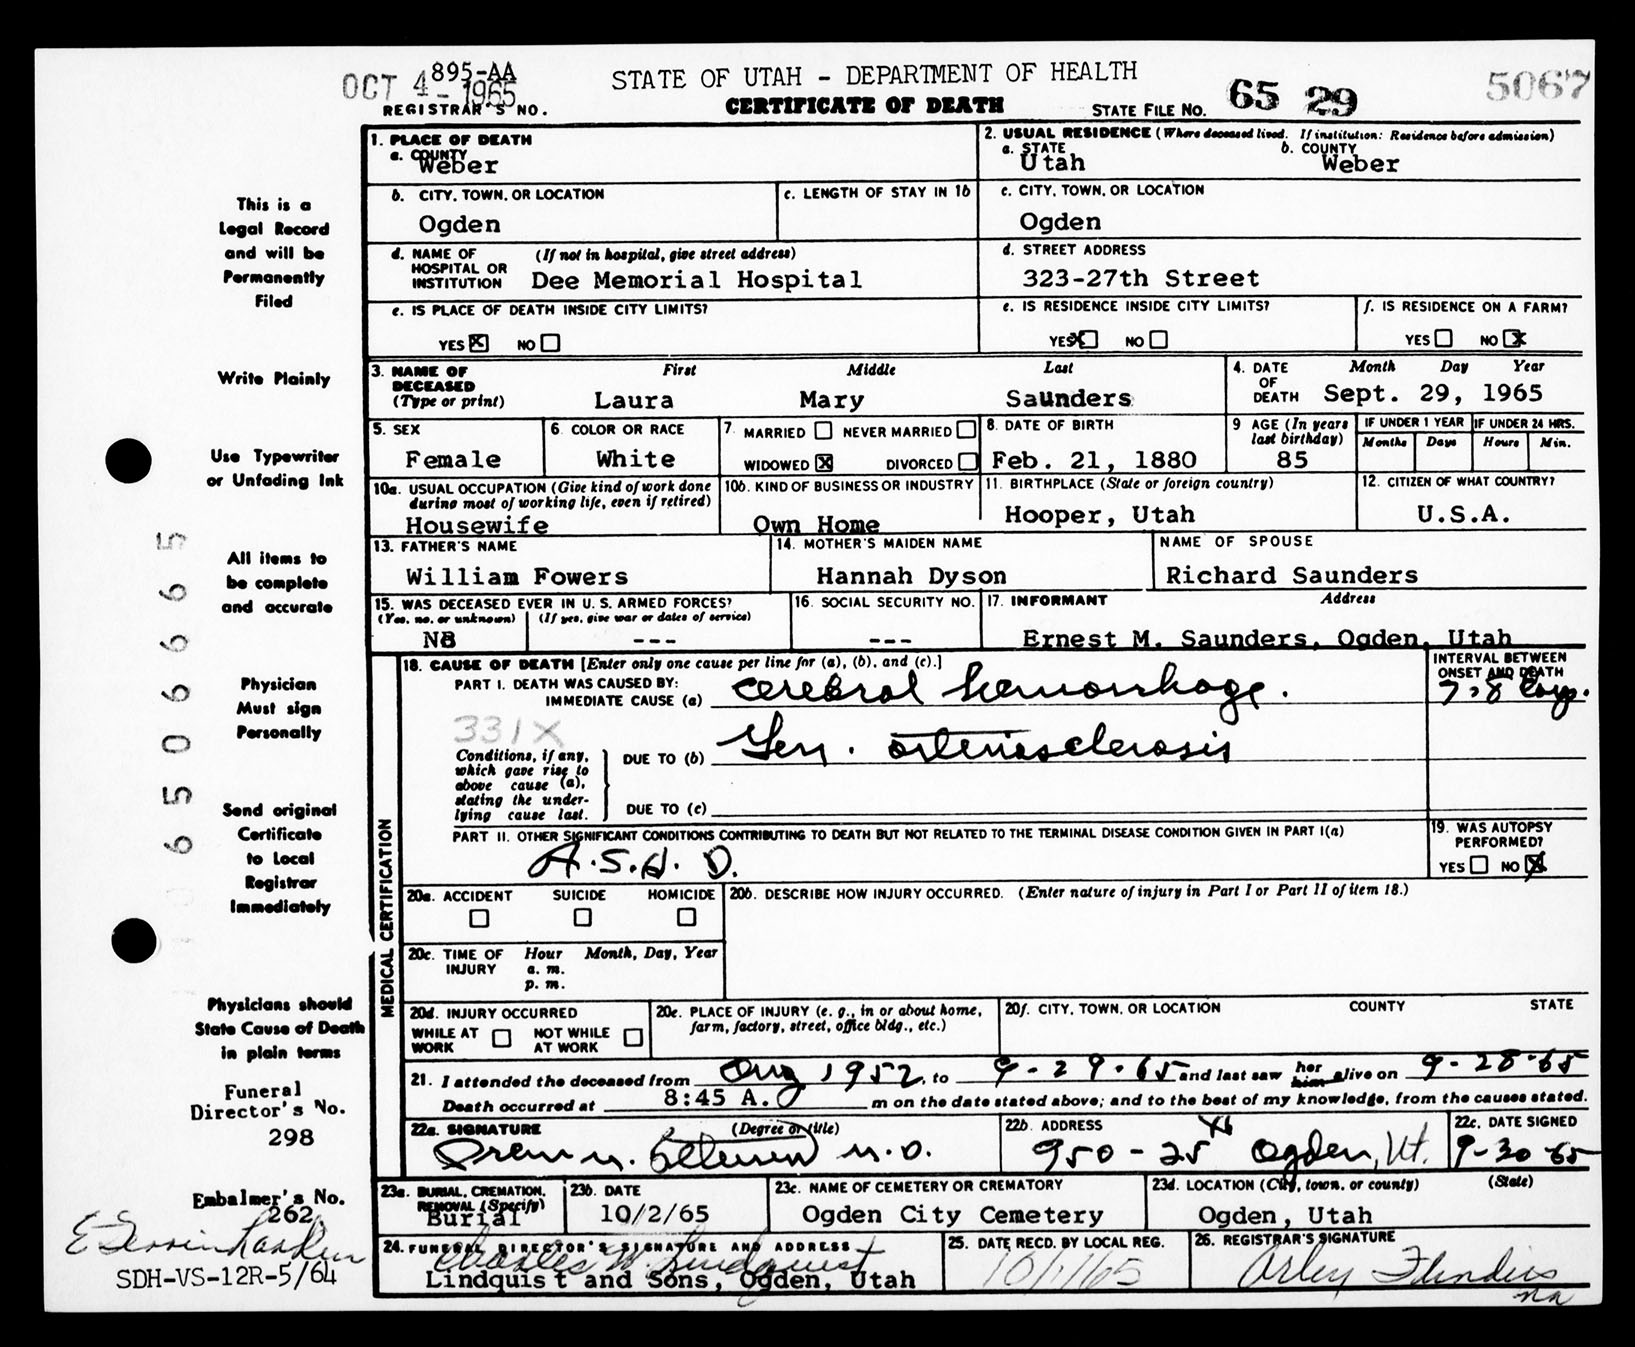 OCT 4 - 1965
895-AA
REGISTRAR'S NO.
STATE OF UTAH - DEPARTMENT OF HEALTH
CERTIFICATE OF DEATH
STATE FILE NO. 65 29 5067
This is a
Legal Record
and will be
Permanently
Filed
Write Plainly
Use Typewriter
or Unfading Ink
All items to
be complete
and accurate
Physician
Must sign
Personally
Send original
Certificate
to Local
Registrar
Immediately
Physicians should
State Cause of Death
in plain terms
Funeral
Director's No.
298
Embalmer's No.
262
SDH-VS-12R-5/64
1. PLACE OF DEATH
a. COUNTY
Weber
2. USUAL RESIDENCE (Where deceased lived. If institution: Residence before admission)
a. STATE b. COUNTY
Utah Weber
b. CITY, TOWN, OR LOCATION
Ogden
c. LENGTH OF STAY IN 1b
c. CITY, TOWN, OR LOCATION
Ogden
d. NAME OF HOSPITAL OR INSTITUTION (If not in hospital, give street address)
Dee Memorial Hospital
d. STREET ADDRESS
323-27th Street
e. IS PLACE OF DEATH INSIDE CITY LIMITS?
YES X NO
e. IS RESIDENCE INSIDE CITY LIMITS?
YES X NO
f. IS RESIDENCE ON A FARM?
YES NO X
3. NAME OF DECEASED (Type or print)
First Middle Last
Laura Mary Saunders
4. DATE OF DEATH Month Day Year
Sept. 29, 1965
5. SEX
Female
6. COLOR OR RACE
White
7. MARRIED NEVER MARRIED
WIDOWED X DIVORCED
8. DATE OF BIRTH
Feb. 21, 1880
9 AGE (In years last birthday)
85
IF UNDER 1 YEAR
Months Days
IF UNDER 24 HRS.
Hours Min.
10a. USUAL OCCUPATION (Give kind of work done during most of working life, even if retired)
Housewife
10b. KIND OF BUSINESS OR INDUSTRY
Own Home
11. BIRTHPLACE (State or foreign country)
Hooper, Utah
12. CITIZEN OF WHAT COUNTRY?
U.S.A.
13. FATHER'S NAME
William Fowers
14. MOTHER'S MAIDEN NAME
Hannah Dyson
NAME OF SPOUSE
Richard Saunders
15. WAS DECEASED EVER IN U.S. ARMED FORCES?
(Yes, no, or unknown) (If yes, give war or dates of service)
No ---
16. SOCIAL SECURITY NO.
---
17. INFORMANT Address
Ernest M. Saunders, Ogden, Utah
MEDICAL CERTIFICATION
18. CAUSE OF DEATH [Enter only one cause per line for (a), (b), and (c).]
INTERVAL BETWEEN ONSET AND DEATH
PART I. DEATH WAS CAUSED BY:
IMMEDIATE CAUSE (a) cerebral hemorrhage.
331X
Conditions, if any, which gave rise to above cause (a), stating the underlying cause last.
DUE TO (b) Gen. arteriosclerosis
DUE TO (c)
PART II. OTHER SIGNIFICANT CONDITIONS CONTRIBUTING TO DEATH BUT NOT RELATED TO THE TERMINAL DISEASE CONDITION GIVEN IN PART I(a)
A.S.H.D.
19. WAS AUTOPSY PERFORMED?
YES NO X
20a. ACCIDENT SUICIDE HOMICIDE
20b. DESCRIBE HOW INJURY OCCURRED. (Enter nature of injury in Part I or Part II of item 18.)
20c. TIME OF INJURY Hour Month, Day, Year
a. m.
p. m.
20d. INJURY OCCURRED
WHILE AT WORK NOT WHILE AT WORK
20e. PLACE OF INJURY (e. g., in or about home, farm, factory, street, office bldg., etc.)
20f. CITY, TOWN, OR LOCATION COUNTY STATE
21. I attended the deceased from Aug 1952, to 9-29-65 and last saw her him alive on 9-28-65
Death occurred at 8:45 A. m on the date stated above; and to the best of my knowledge, from the causes stated.
22a. SIGNATURE (Degree or title)
M.D.
22b. ADDRESS
950-25 th Ogden, Ut.
22c. DATE SIGNED
9-30-65
23a. BURIAL, CREMATION, REMOVAL (Specify)
Burial
23b. DATE
10/2/65
23c. NAME OF CEMETERY OR CREMATORY
Ogden City Cemetery
23d. LOCATION (City, town, or county) (State)
Ogden, Utah
24. FUNERAL DIRECTOR'S SIGNATURE AND ADDRESS
Charles W. Lindquist
Lindquist and Sons, Ogden, Utah
25. DATE RECD. BY LOCAL REG.
10/1/65
26. REGISTRAR'S SIGNATURE
Arley Flinders
na